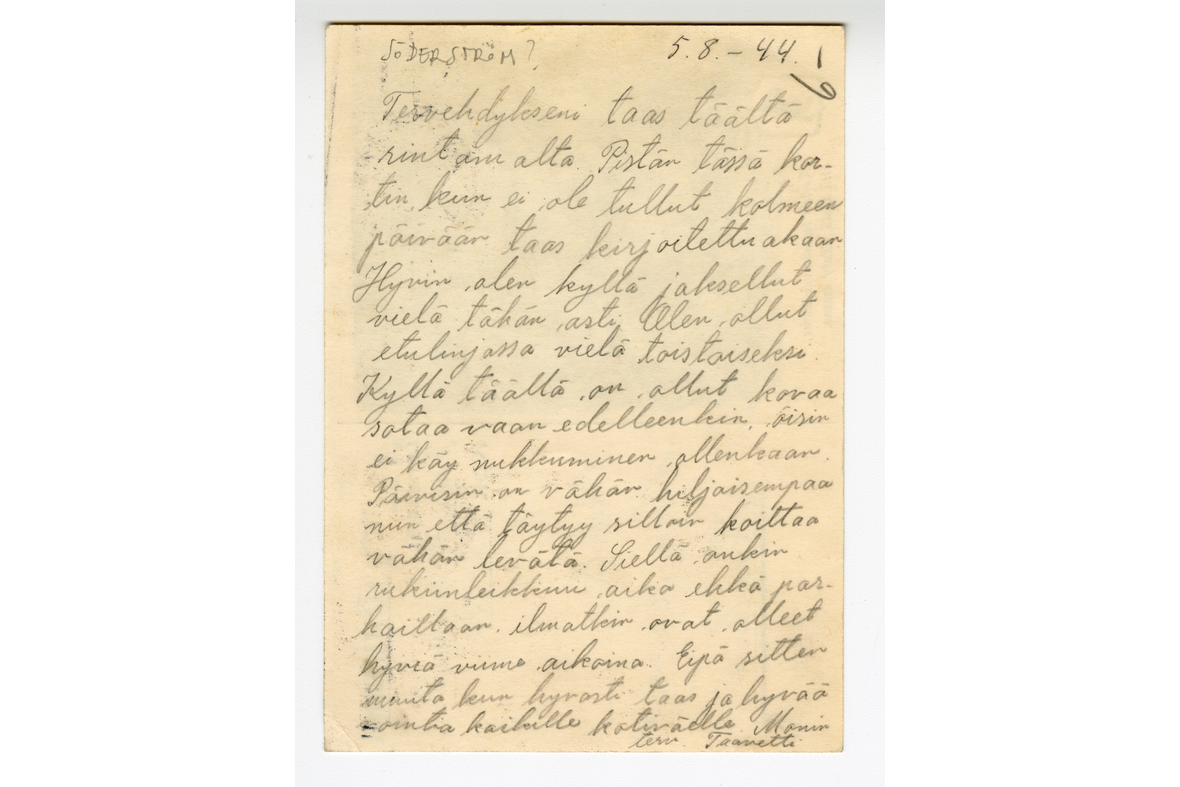 SÖDERSTRÖM? 5.8.-44. 6
Tervehdykseni taas täältä
rintamalta. Pistän tässä kor-
tin kun ei ole tullut kolmeen
päivään taas kirjoitettuakaan
Hyvin olen kyllä jaksellut
vielä tähän asti. Olen ollut
etulinjassa vielä toistaiseksi.
Kyllä täällä on ollut kovaa
sotaa vaan edelleenkin, öisin
ei käy nukkuminen ollenkaan.
Päivisin on vähän hiljaisempaa
niin että täytyy silloin koittaa
vähän levätä. Siellä onkin
rukiinleikkuu aika ehkä par-
haillaan. ilmatkin ovat olleet
hyviä viime aikoina. Eipä sitten
muuta kun hyvästi taas ja hyvää
vointia kaikille kotiväelle Monin
terv. Taavetti